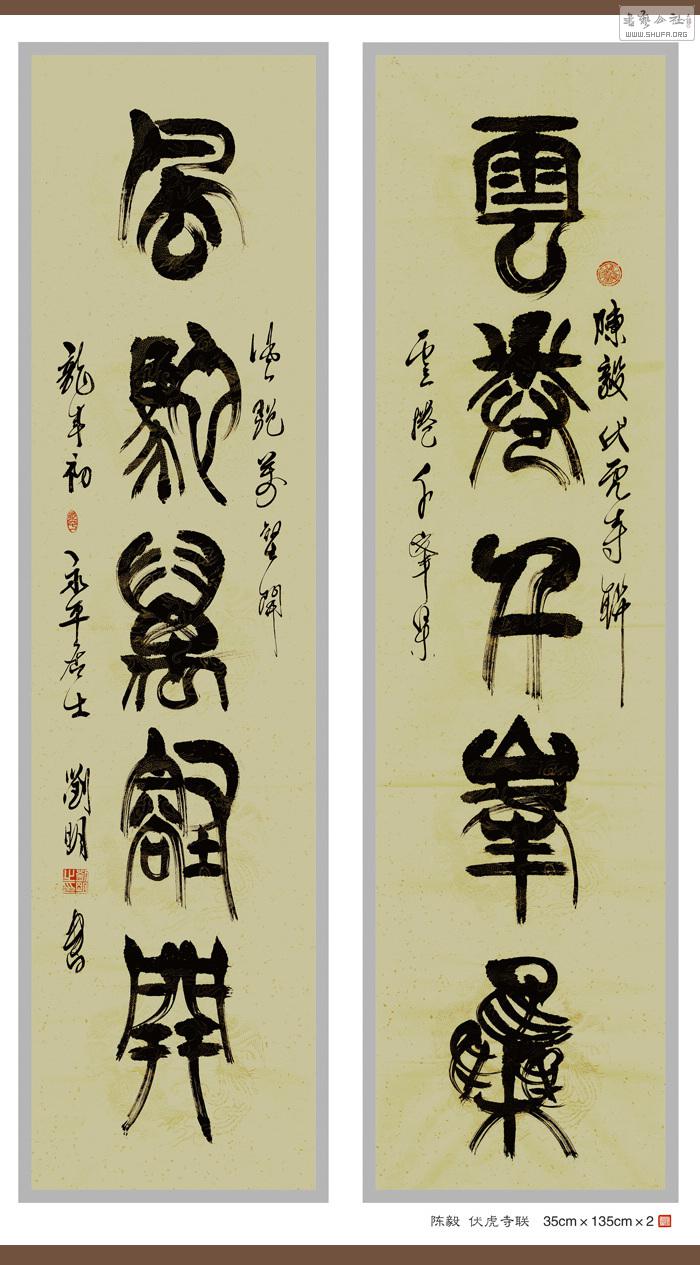 書藝公社
WWW.SHUFA.ORG
陳毅伏虎寺聯
雲卷千峯集
雲卷千峯集
風馳萬壑開
風馳萬壑開
龍年初 永平居士 劉明 書
陈毅 伏虎寺联 35cm×135cm×2